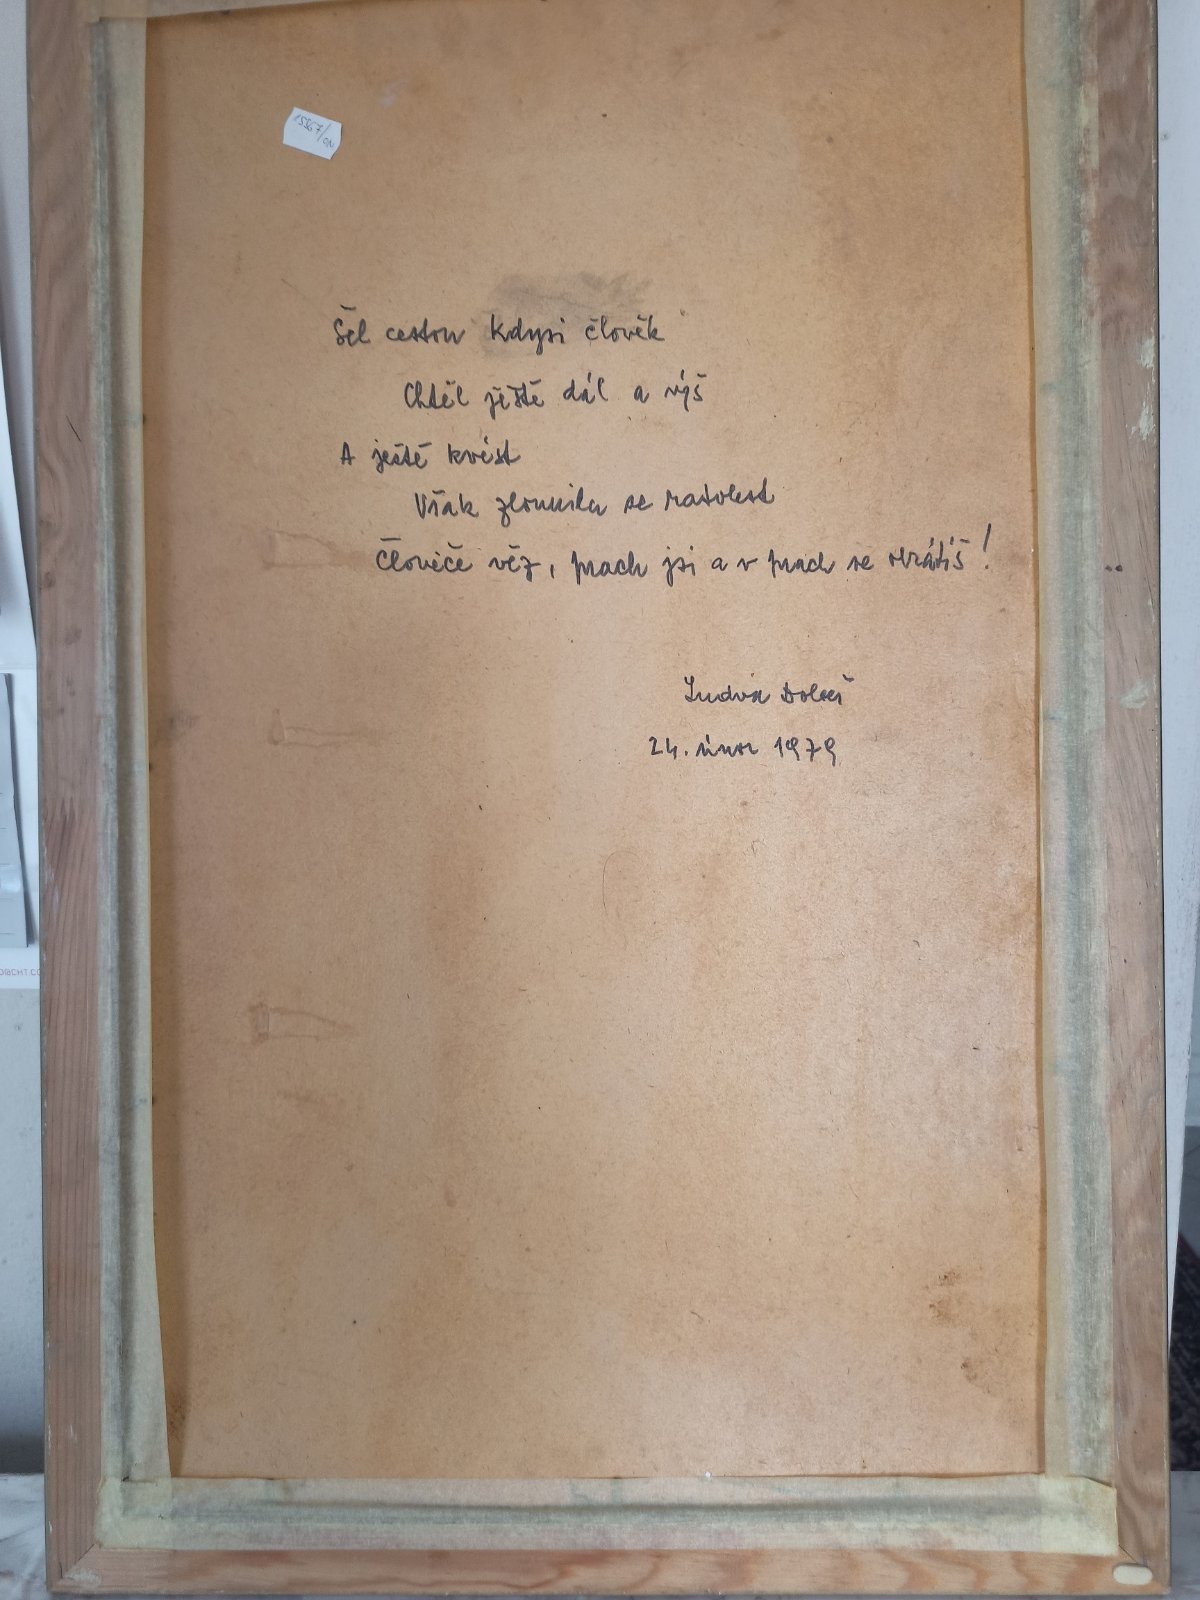 15567/01
Šel cestou kdysi člověk
Chtěl ještě dál a výš
A ještě kvést
Však zlomila se ratolest
Člověče věz, prach jsi a v prach se obrátíš!
Ludva
24. únor 1979